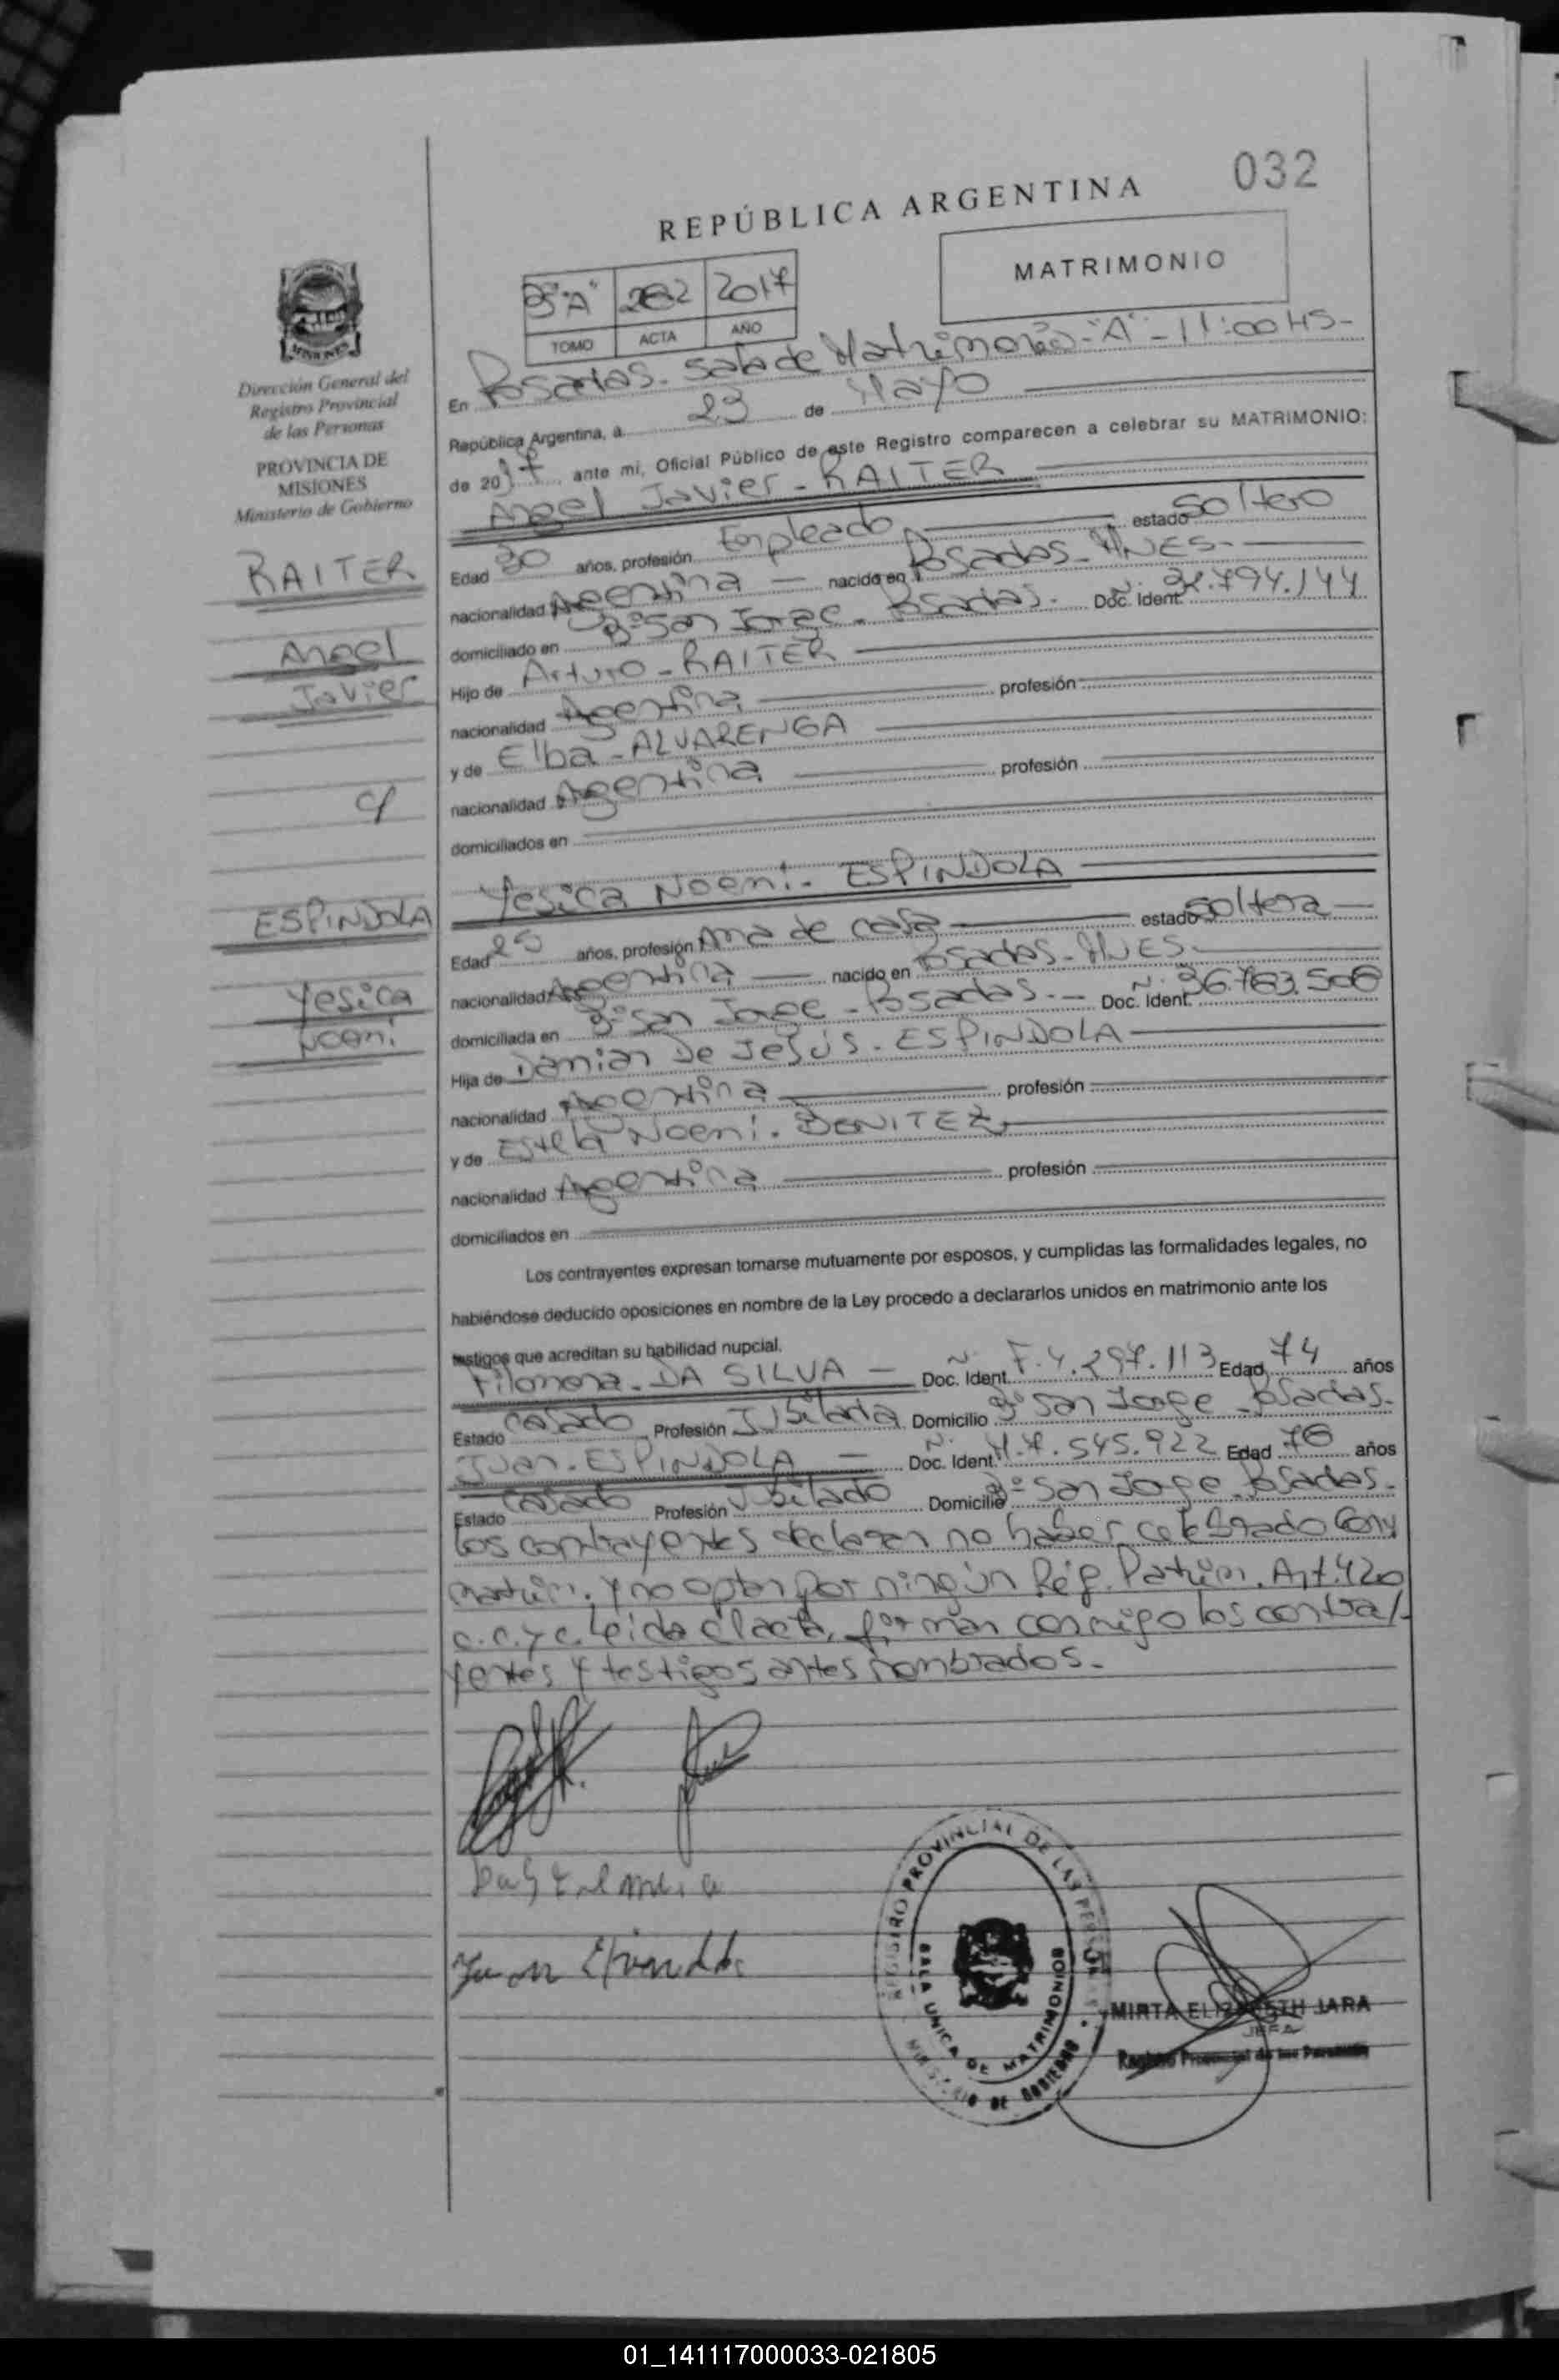 032
REPÚBLICA ARGENTINA
MATRIMONIO
"A" 282 2017
TOMO ACTA AÑO
Dirección General del
Registro Provincial
de las Personas
PROVINCIA DE
MISIONES
Ministerio de Gobierno
En Posadas - Sala de Matrimonios - "A" - 11:00 HS -
República Argentina, a 23 de Mayo
de 2017 ante mi, Oficial Público de este Registro comparecen a celebrar su MATRIMONIO:
Angel Javier - RAITER
RAITER
Angel
Javier
Edad 30 años, profesión Empleado estado Soltero
nacionalidad Argentina - nacido en Posadas - MNES. -
domiciliado en Bº San Jorge - Posadas. Doc. Ident. Nº 32.794.144
Hijo de Arturo - RAITER
nacionalidad Argentina profesión
y de Elba - ALVARENGA
nacionalidad Argentina profesión
domiciliados en
c/
Yesica Noemi - ESPINDOLA
ESPINDOLA
Yesica
Noemi
Edad 25 años, profesión Ama de casa estado Soltera -
nacionalidad Argentina - nacido en Posadas - MNES. -
domiciliada en Bº San Jorge - Posadas. - Doc. Ident. Nº 36.763.506
Hija de Damian De Jesús - ESPINDOLA
nacionalidad Argentina profesión
y de Estela Noemi - BENITEZ
nacionalidad Argentina profesión
domiciliados en
Los contrayentes expresan tomarse mutuamente por esposos, y cumplidas las formalidades legales, no
habiéndose deducido oposiciones en nombre de la Ley procedo a declararlos unidos en matrimonio ante los
testigos que acreditan su habilidad nupcial.
Filomena - DA SILVA - Doc. Ident. Nº F. 4.297.113 Edad 74 años
Estado Casado Profesión Jubilada Domicilio Bº San Jorge - Posadas. -
Juan - ESPINDOLA - Doc. Ident. Nº M. 7.545.922 Edad 76 años
Estado Casado Profesión Jubilado Domicilio Bº San Jorge - Posadas. -
Los contrayentes declaran no haber celebrado Conv
matrim. y no optan por ningún Rég. Patrim. Art. 420
c.c.y c. Leida el acta, firman conmigo los contra/-
yentes y testigos antes nombrados. -
Juan
REGISTRO PROVINCIAL DE LAS PERSONAS
SALA UNICA DE MATRIMONIOS
MINISTERIO DE GOBIERNO
MIRTA ELIZABETH JARA
JEFA
Registro Provincial de las Personas
01_141117000033-021805